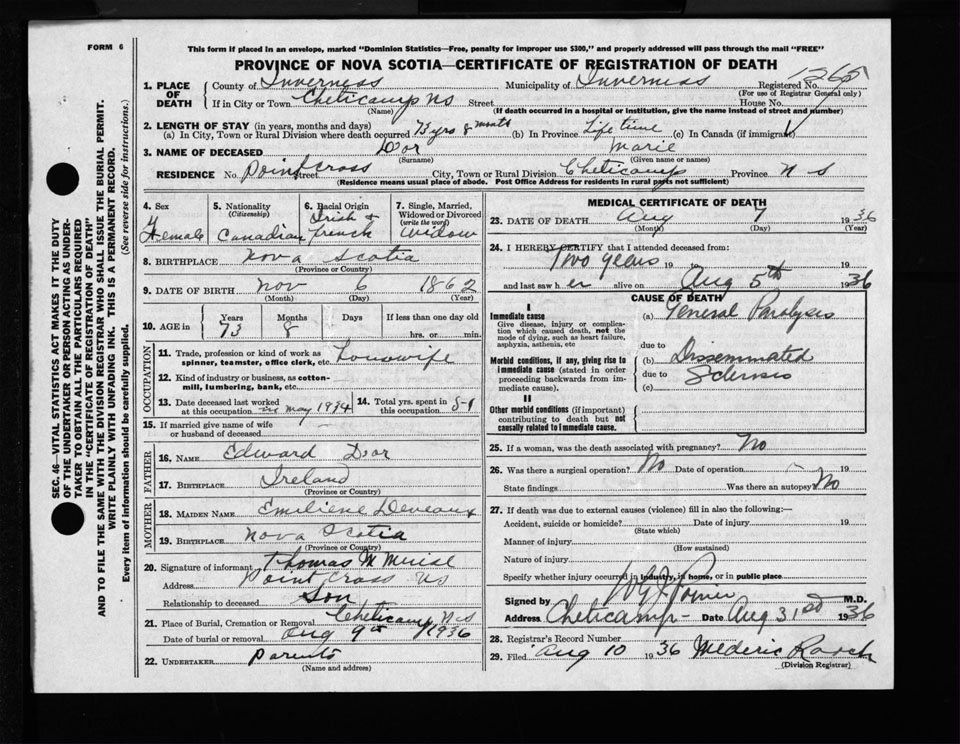 FORM 6
This form if placed in an envelope, marked "Dominion Statistics—Free, penalty for improper use $300," and properly addressed will pass through the mail "FREE"
PROVINCE OF NOVA SCOTIA—CERTIFICATE OF REGISTRATION OF DEATH
1. PLACE OF DEATH
County of Inverness Municipality of Inverness Registered No. 1265
(For use of Registrar General only)
If in City or Town Cheticamp NS Street House No.
(Name) (If death occurred in a hospital or institution, give the name instead of street and number)
2. LENGTH OF STAY (in years, months and days)
(a) In City, Town or Rural Division where death occurred 73 yrs 8 months (b) In Province Life time (c) In Canada (if immigrant)
3. NAME OF DECEASED Dor Marie
(Surname) (Given name or names)
RESIDENCE No. Point Cross Street City, Town or Rural Division Cheticamp Province N S
(Residence means usual place of abode. Post Office Address for residents in rural parts not sufficient)
4. Sex Female
5. Nationality (Citizenship) Canadian
6. Racial Origin Irish & french
7. Single, Married, Widowed or Divorced (write the word) Widow
8. BIRTHPLACE Nova Scotia
(Province or Country)
9. DATE OF BIRTH Nov 6 1862
(Month) (Day) (Year)
10. AGE in Years Months Days If less than one day old
73 8 hrs. or min.
OCCUPATION
11. Trade, profession or kind of work as spinner, teamster, office clerk, etc. housewife
12. Kind of industry or business, as cotton-mill, lumbering, bank, etc.
13. Date deceased last worked at this occupation in May 1934
14. Total yrs. spent in this occupation
15. If married give name of wife or husband of deceased
FATHER
16. NAME Edward Dor
17. BIRTHPLACE Ireland
(Province or Country)
MOTHER
18. MAIDEN NAME Emiliene Deveaux
19. BIRTHPLACE Nova Scotia
(Province or Country)
20. Signature of informant Thomas M
Address Point Cross NS
Relationship to deceased Son
21. Place of Burial, Cremation or Removal Cheticamp NS
Date of burial or removal Aug 9th 1936
22. UNDERTAKER Parents
(Name and address)
MEDICAL CERTIFICATE OF DEATH
23. DATE OF DEATH Aug 7 1936
(Month) (Day) (Year)
24. I HEREBY CERTIFY that I attended deceased from:
Two years 19 to 19
and last saw her alive on Aug 5th 1936
CAUSE OF DEATH
I
Immediate cause
Give disease, injury or complication which caused death, not the mode of dying, such as heart failure, asphyxia, asthenia, etc
(a) General Paralysis
due to
Morbid conditions, if any, giving rise to immediate cause (stated in order proceeding backwards from immediate cause).
(b) Disseminated
due to Sclerosis
(c)
II
Other morbid conditions (if important) contributing to death but not causally related to immediate cause.
25. If a woman, was the death associated with pregnancy? No
26. Was there a surgical operation? No Date of operation 19
State findings Was there an autopsy No
27. If death was due to external causes (violence) fill in also the following:—
Accident, suicide or homicide? Date of injury 19
(State which)
Manner of injury
(How sustained)
Nature of injury
Specify whether injury occurred in industry, in home, or in public place
Signed by M.D.
Address Cheticamp Date Aug 31 1936
28. Registrar's Record Number
29. Filed Aug 10 1936 Mederic
(Division Registrar)
SEC. 46—VITAL STATISTICS ACT MAKES IT THE DUTY
OF THE UNDERTAKER OR PERSON ACTING AS UNDER-
TAKER TO OBTAIN ALL THE PARTICULARS REQUIRED
IN THE "CERTIFICATE OF REGISTRATION OF DEATH"
AND TO FILE THE SAME WITH THE DIVISION REGISTRAR WHO SHALL ISSUE THE BURIAL PERMIT.
WRITE PLAINLY WITH UNFADING INK. THIS IS A PERMANENT RECORD.
Every item of information should be carefully supplied. (See reverse side for instructions.)